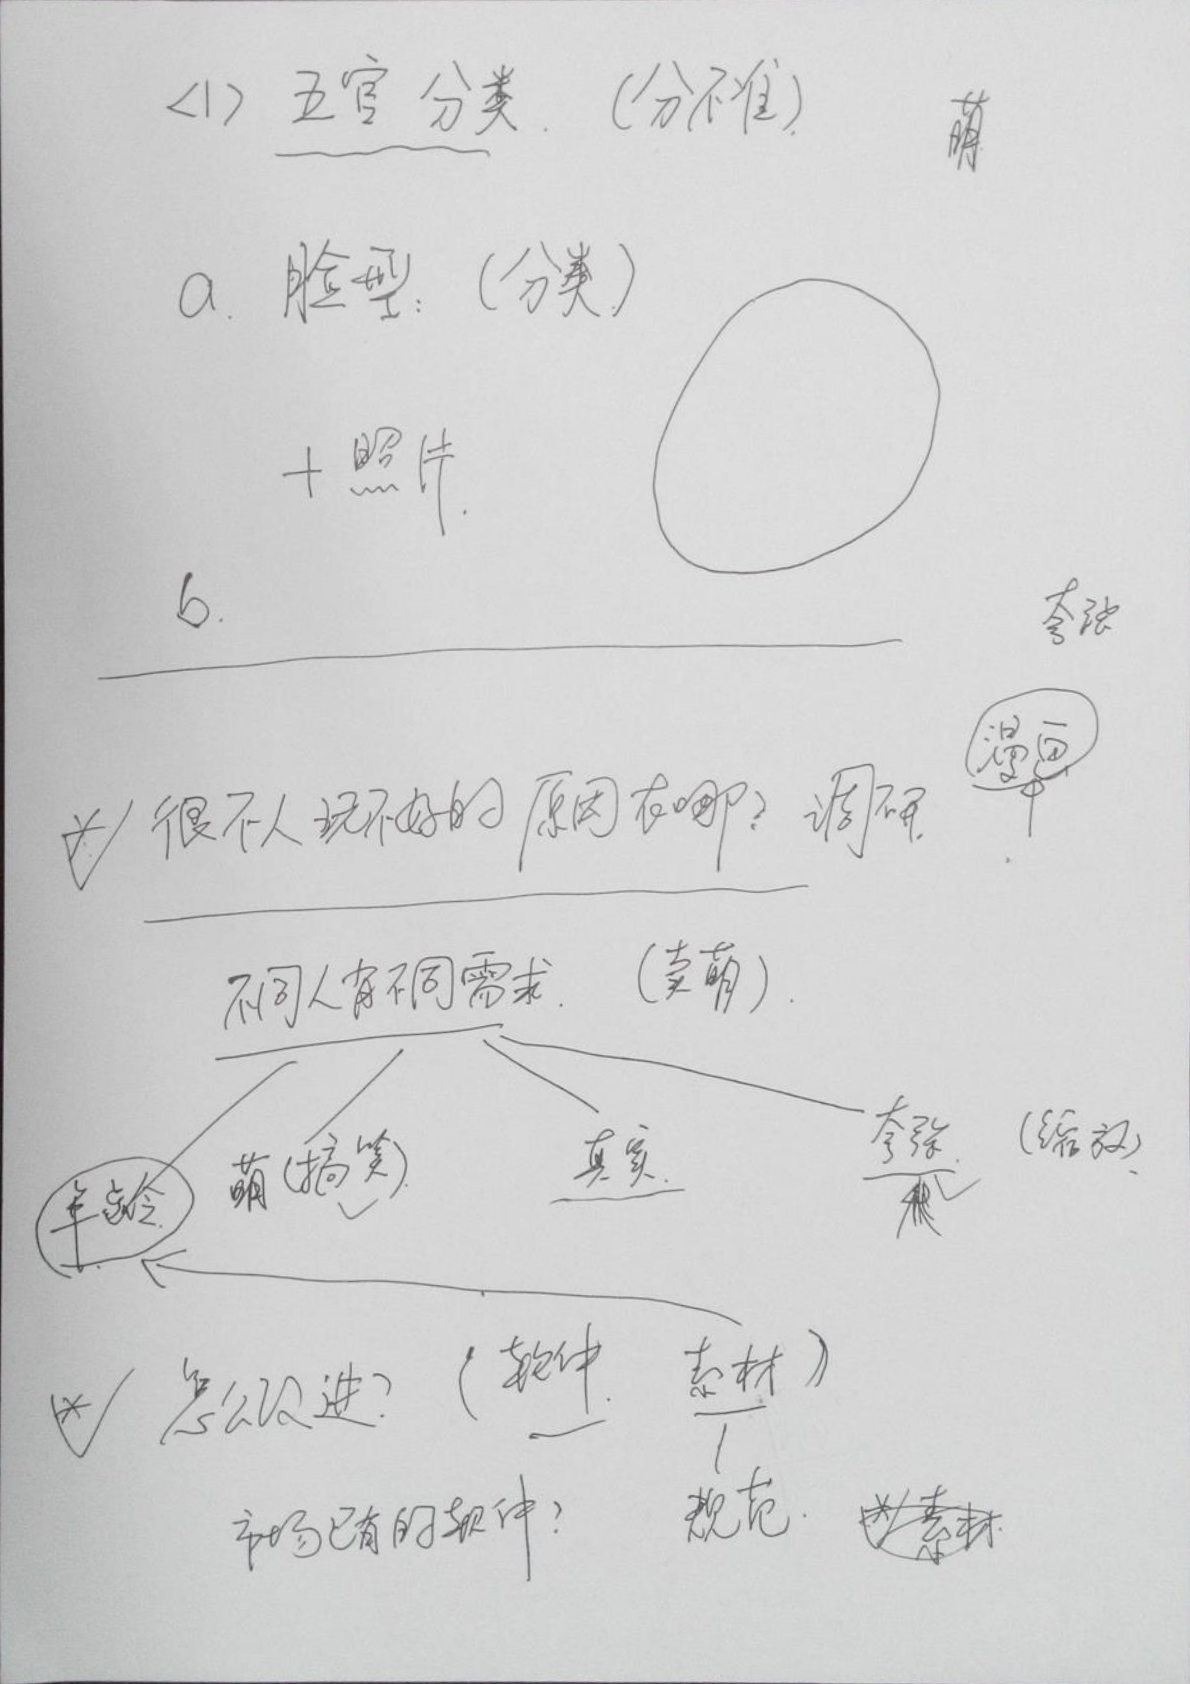 <1> 五官分类. (分不准)
萌
a. 脸型: (分类)
+照片.
b.
夸张
漫画
很不人玩不好的原因在哪? 调研
不同人有不同需求. (卖萌).
年龄 萌(搞笑) 真实. 夸张. (缩放)
怎么改进? (软件. 素材)
市场已有的软件? 规范. 素材